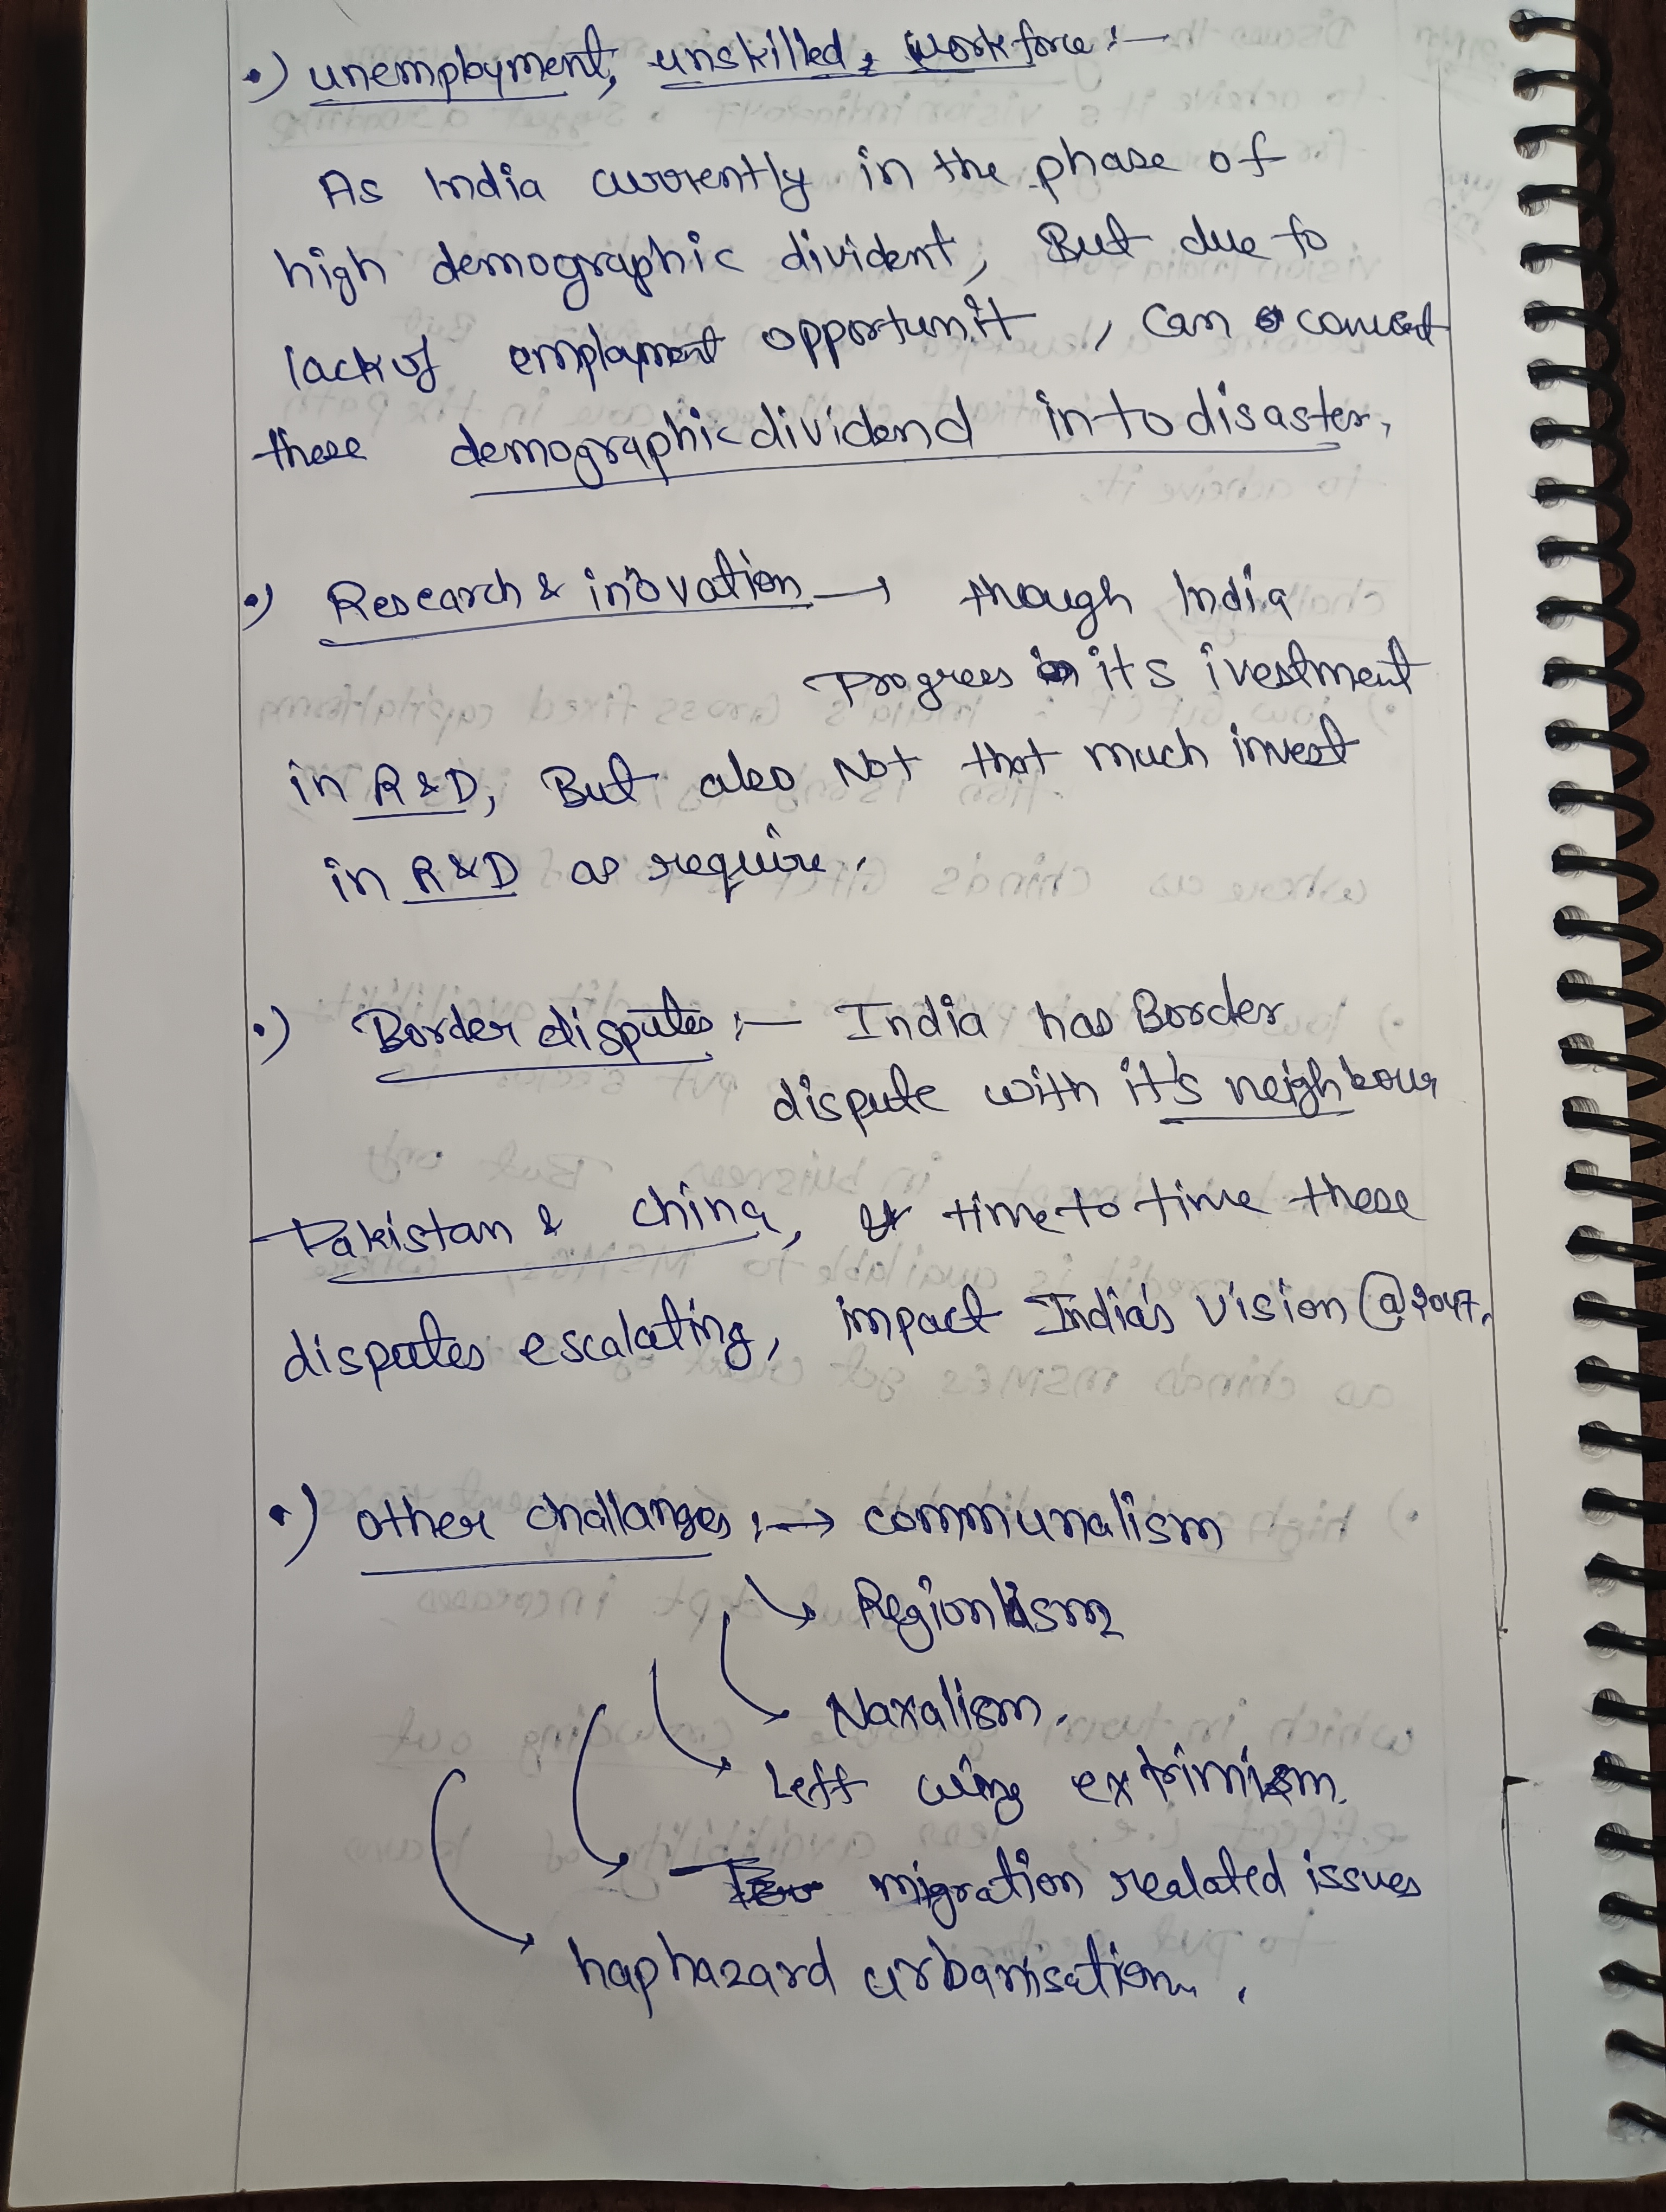 •) unemployment, unskilled, workforce :—
As India currently in the phase of
high demographic divident, But due to
lack of employment opportunit, can convert
these demographic dividend into disaster,
•) Research & inovation → though India
Progress in its ivestment
in R&D, But also Not that much invest
in R&D as require.
•) Border disputes :— India has Border
dispute with it's neighbour
Pakistan & China, time to time these
disputes escalating, impact India's Vision @2047.
•) other challanges :→ communalism
Regionlism
Naxalism.
Left wing extrimism.
migration realated issues
haphazard urbanisation.